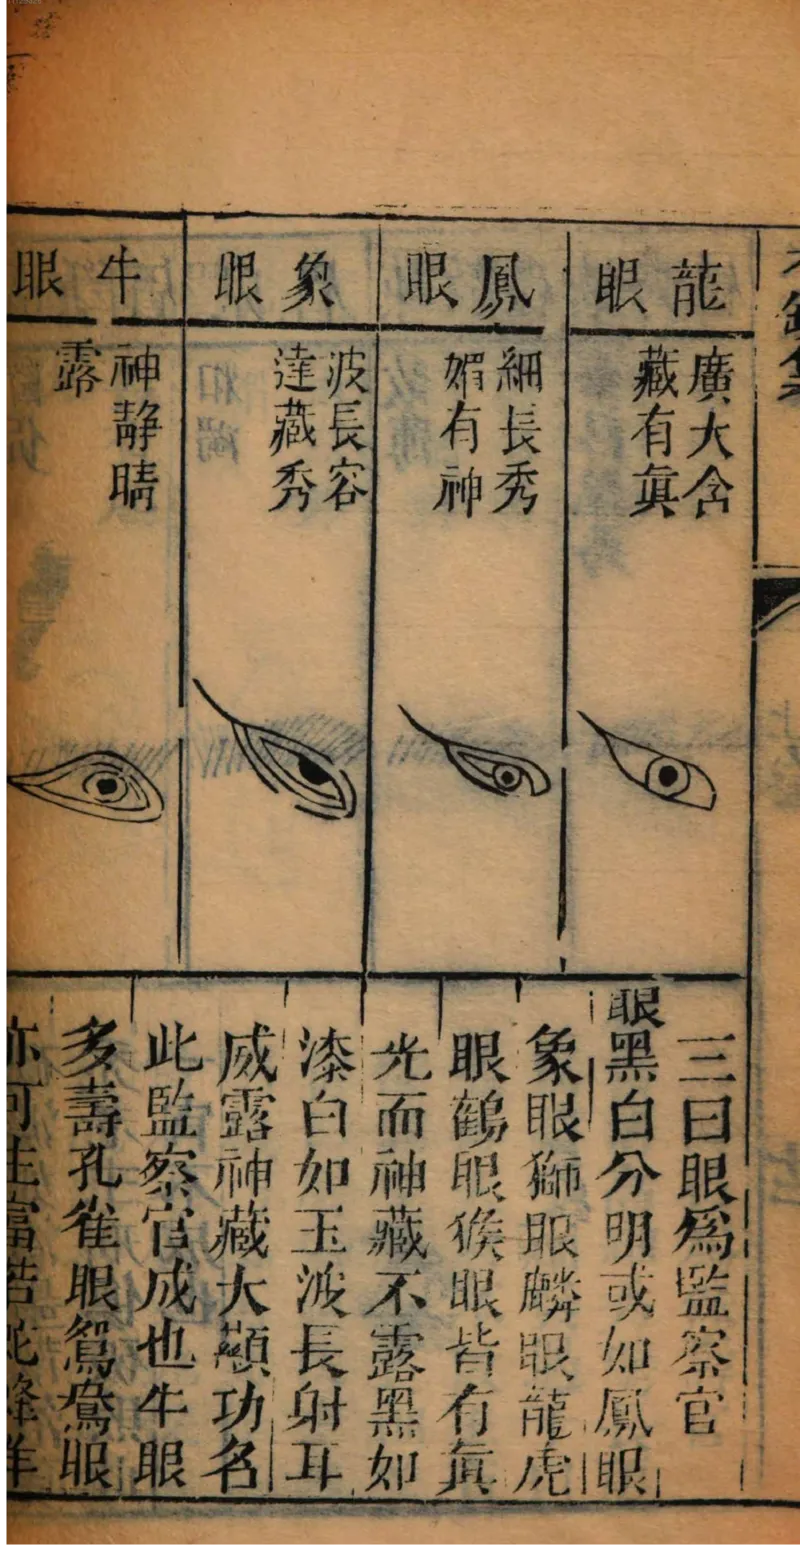 龍眼
廣大含
藏有真
鳳眼
細長秀
媚有神
象眼
波長容
達藏秀
牛眼
神靜睛
露
三曰眼爲監察官
眼黑白分明或如鳳眼
象眼獅眼麟眼龍虎
眼鶴眼猴眼皆有真
光而神藏不露黑如
漆白如玉波長射耳
威露神藏大顯功名
此監察官成也牛眼
多壽孔雀眼鴛鴦眼
亦可主富